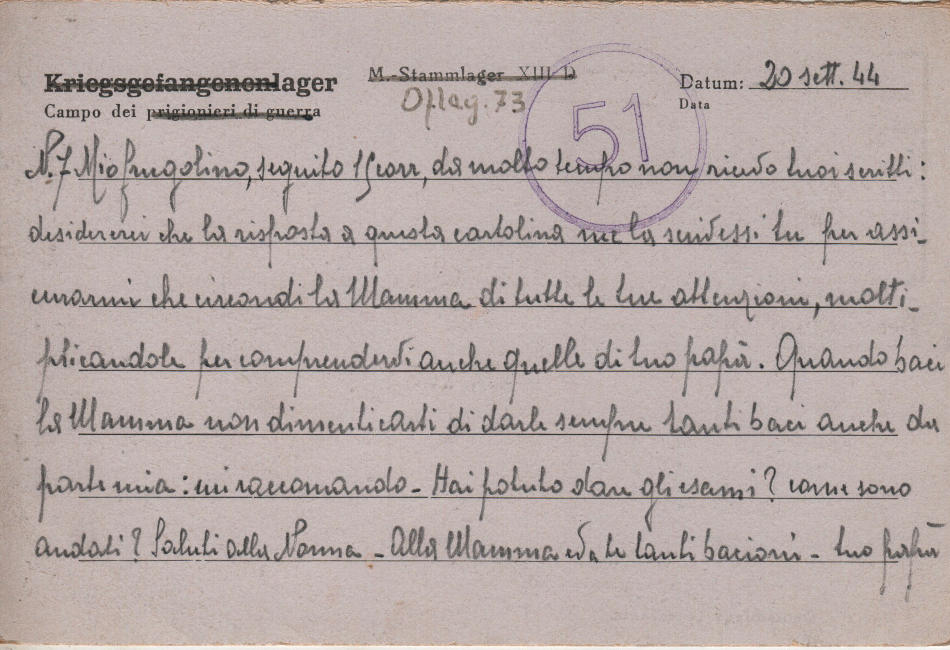 Kriegsgefangenenlager
M.-Stammlager XIII D
Datum: 20 sett. 44
Campo dei prigionieri di guerra
Oflag. 73
Data
51
N. 7 Mio frugolino, seguito 15 corr, da molto tempo non ricevo tuoi scritti:
desidererei che la risposta a questa cartolina me la scrivessi tu per assi-
curarmi che circondi la Mamma di tutte le tue attenzioni, molti-
plicandole per comprendervi anche quelle di tuo papà. Quando baci
la Mamma non dimenticarti di darle sempre tanti baci anche da
parte mia: mi raccomando - Hai potuto dare gli esami? come sono
andati? Saluti alla Nonna - Alla Mamma ed a te tanti bacioni - tuo papà